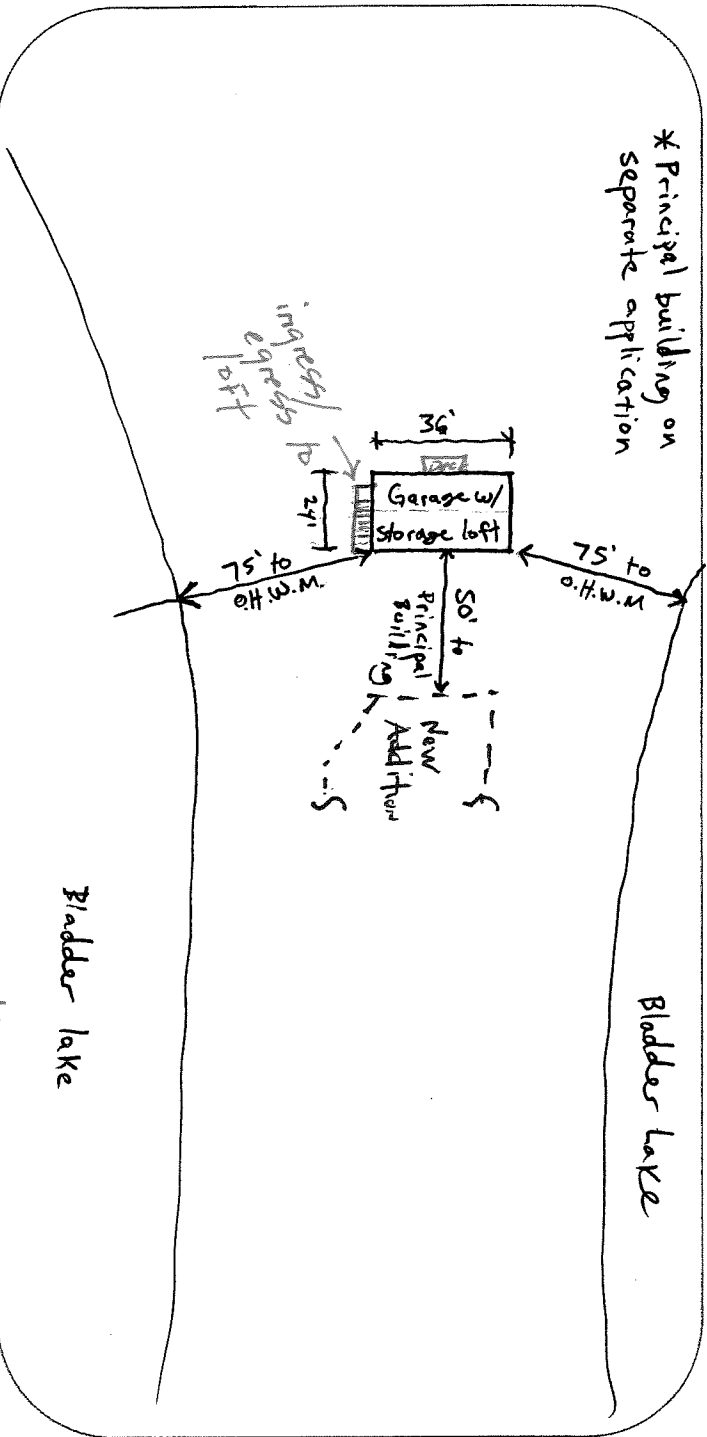 * Principal building on
separate application
ingress/
egress to
loft
36'
24'
Garage w/
Storage loft
75' to
O.H.W.M.
75' to
O.H.W.M
50' to
Principal
Building
New
Addition
Bladder Lake
Bladder lake